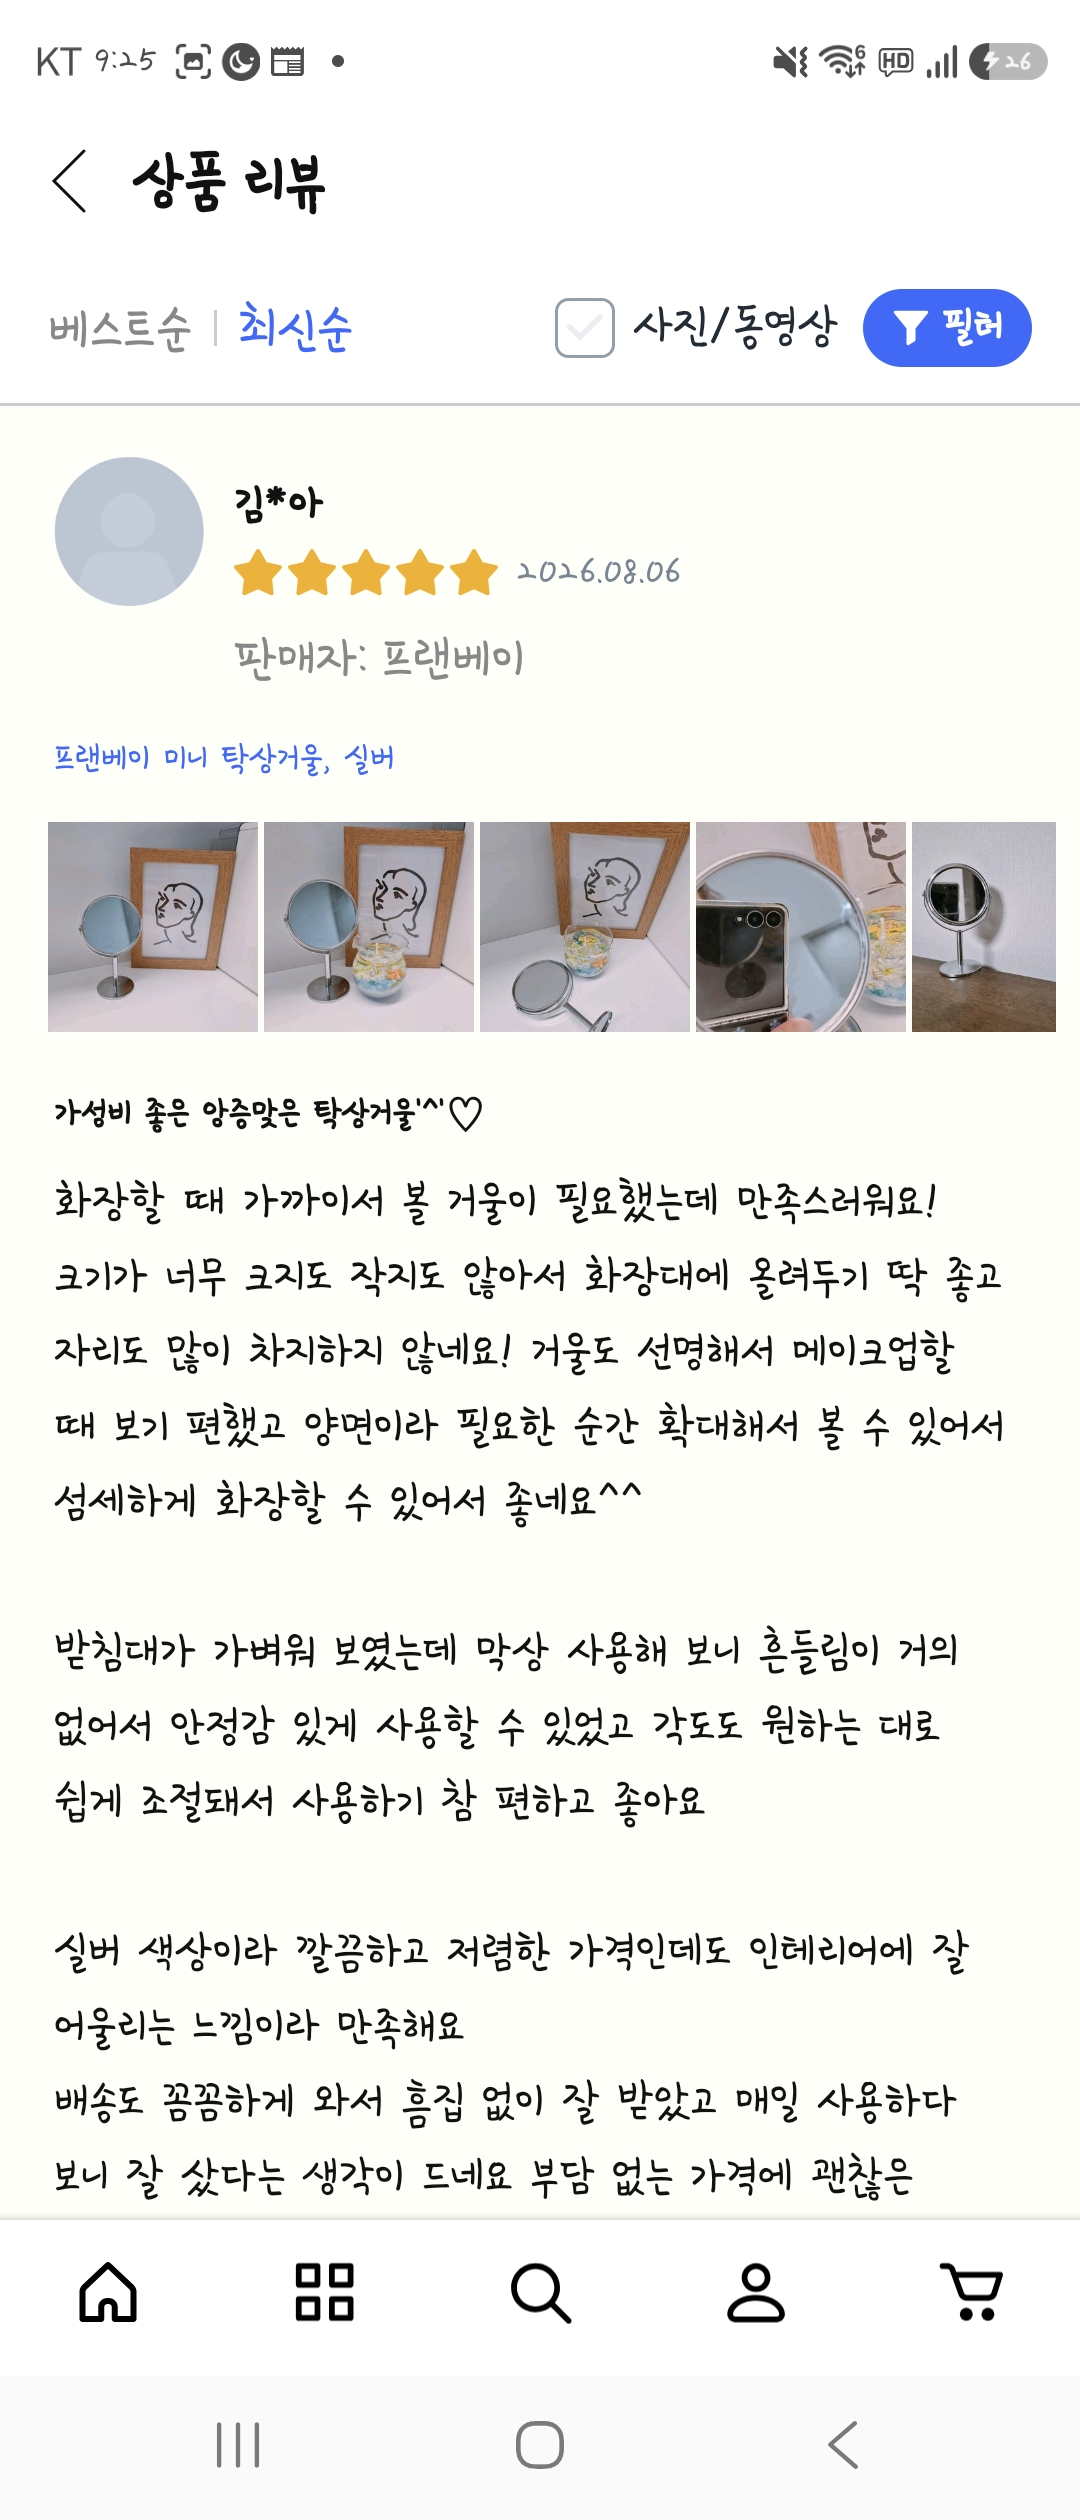 KT 9:25
6 HD 26
상품 리뷰
베스트순 | 최신순 사진/동영상 필터
김*아
2026.08.06
판매자: 프랜베이
프랜베이 미니 탁상거울, 실버
가성비 좋은 앙증맞은 탁상거울'^'♡
화장할 때 가까이서 볼 거울이 필요했는데 만족스러워요!
크기가 너무 크지도 작지도 않아서 화장대에 올려두기 딱 좋고
자리도 많이 차지하지 않네요! 거울도 선명해서 메이크업할
때 보기 편했고 양면이라 필요한 순간 확대해서 볼 수 있어서
섬세하게 화장할 수 있어서 좋네요^^
받침대가 가벼워 보였는데 막상 사용해 보니 흔들림이 거의
없어서 안정감 있게 사용할 수 있었고 각도도 원하는 대로
쉽게 조절돼서 사용하기 참 편하고 좋아요
실버 색상이라 깔끔하고 저렴한 가격인데도 인테리어에 잘
어울리는 느낌이라 만족해요
배송도 꼼꼼하게 와서 흠집 없이 잘 받았고 매일 사용하다
보니 잘 샀다는 생각이 드네요 부담 없는 가격에 괜찮은